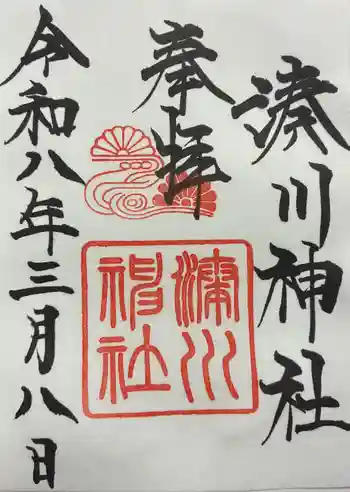 奉拝
湊川神社
湊川神社
令和八年三月八日